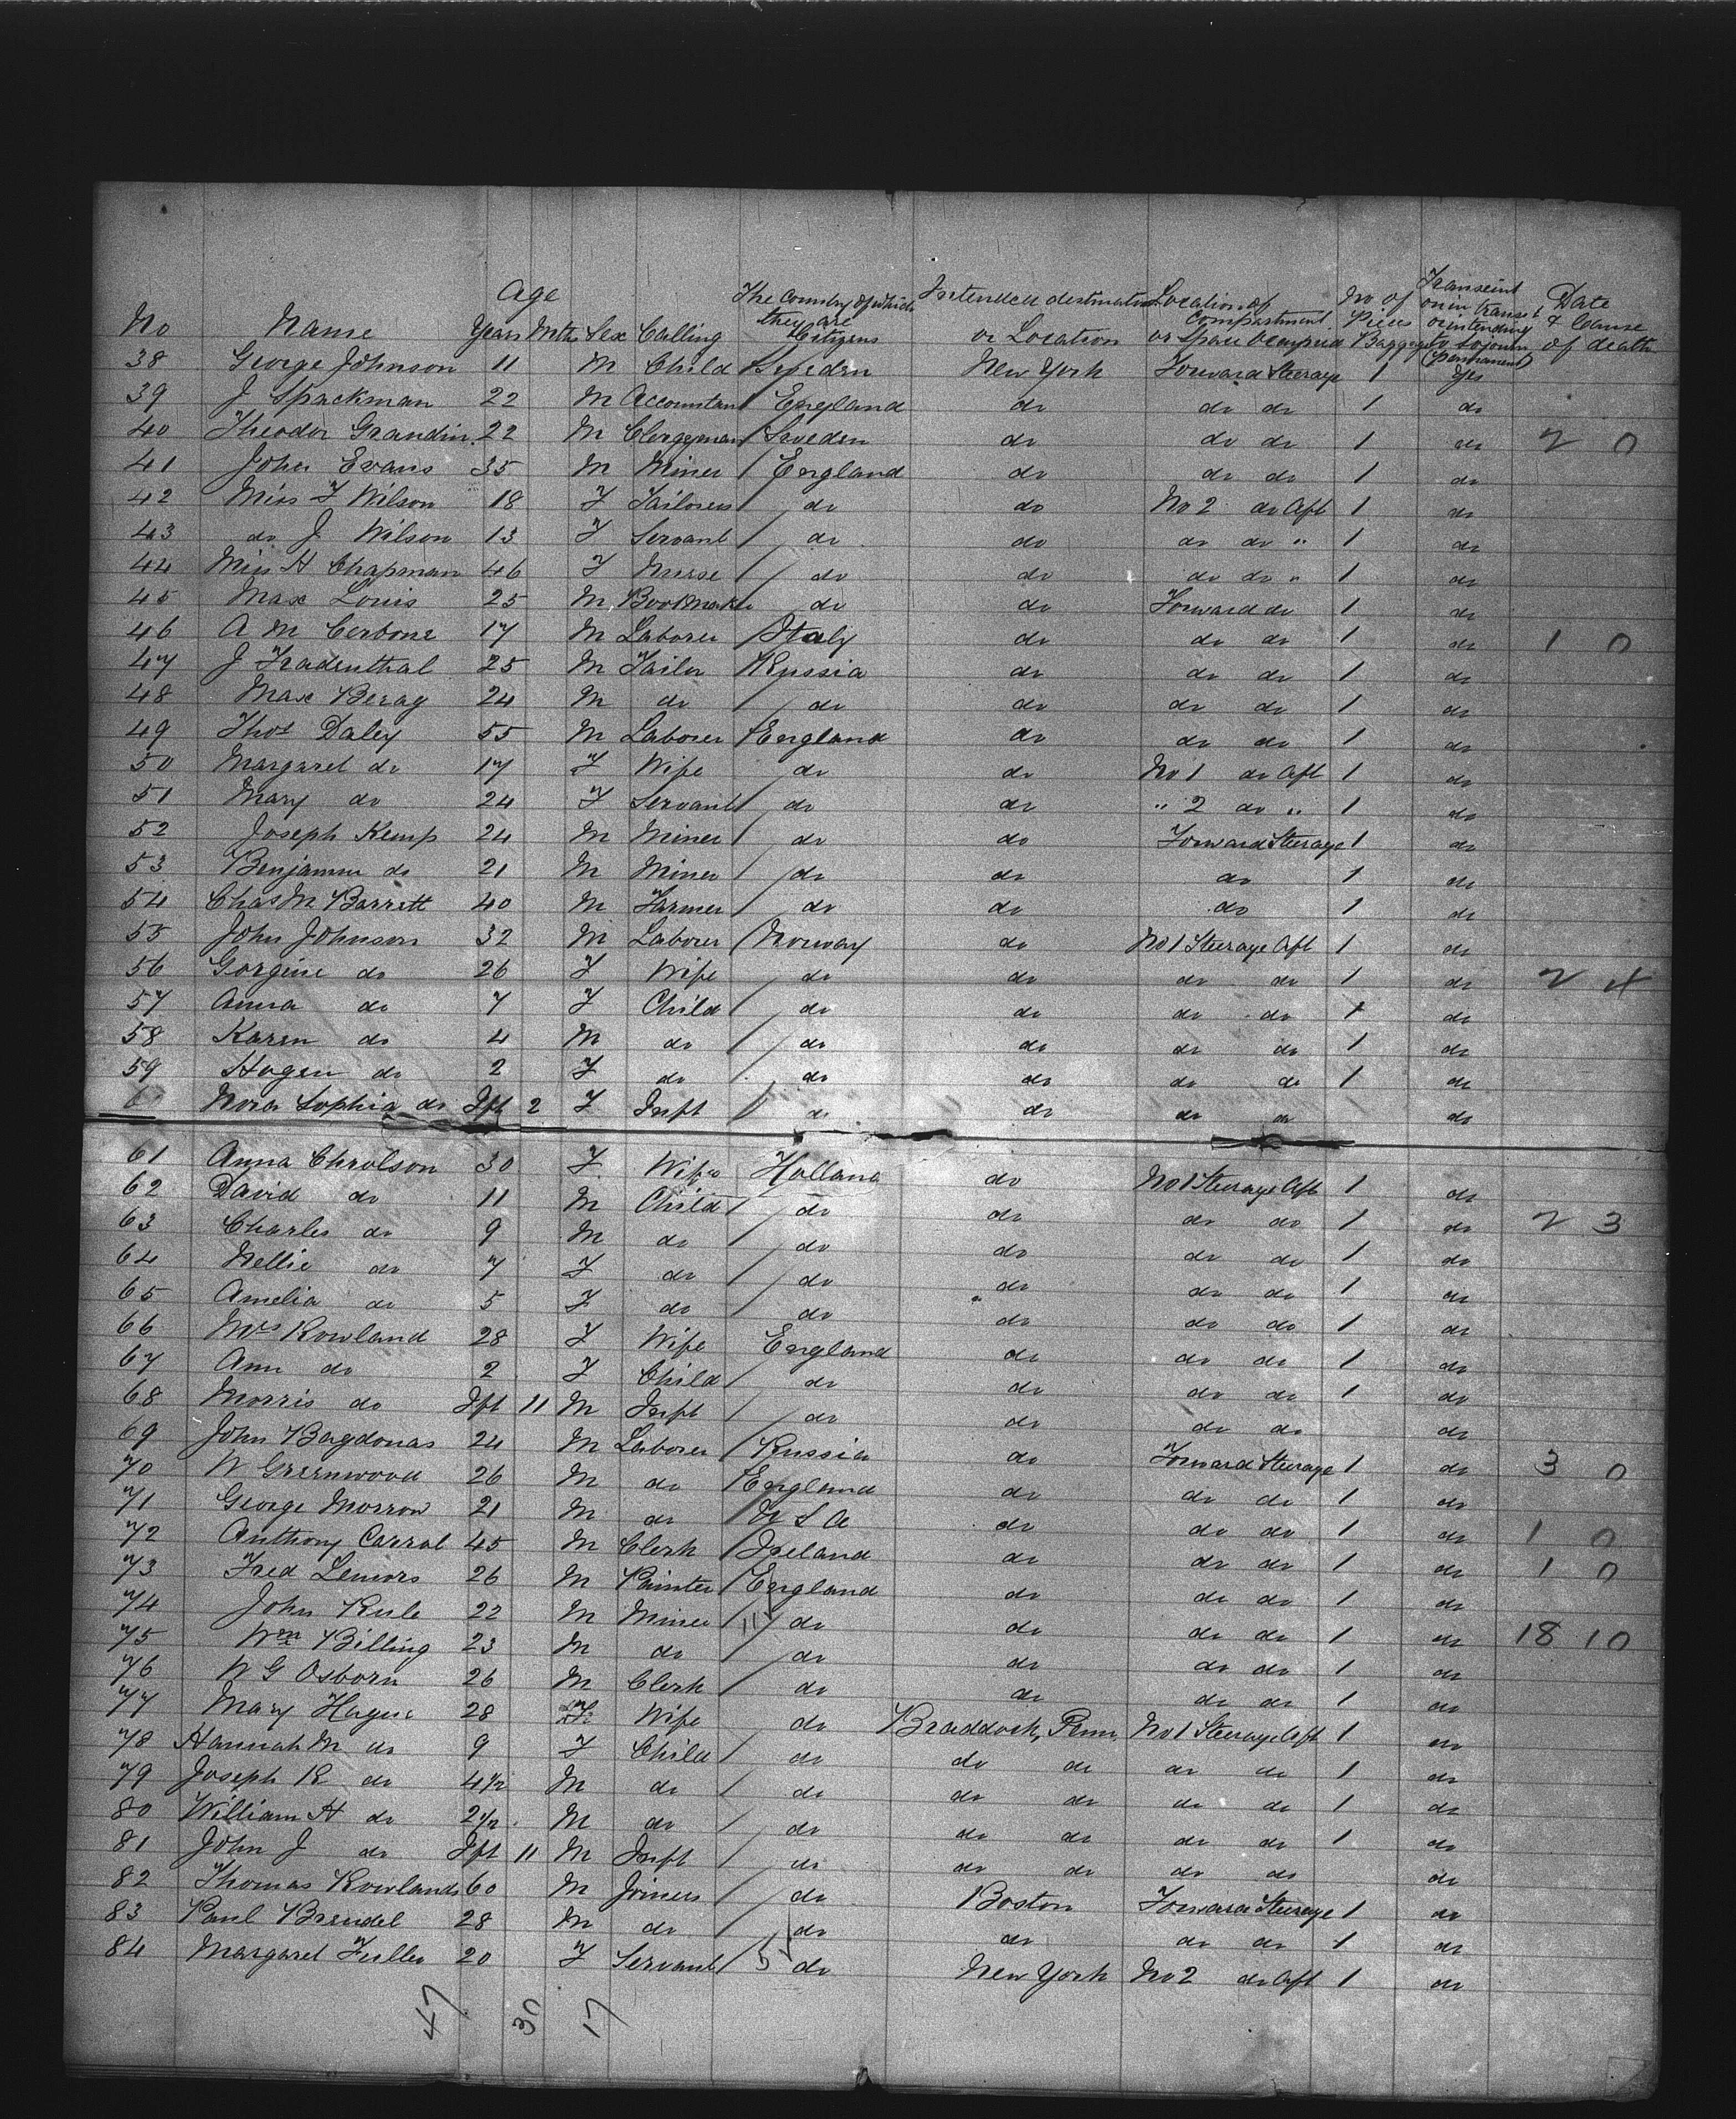 Age
No Name Years Mths Sex Calling The Country of which they are Citizens Intended destination or Location Location of compartment or space occupied No of Pieces Baggage Transeint or in transit or intending to sojourn (permanent) Date & Cause of death
38 George Johnson 11 M Child Sweden New York Forward Steerage 1 Yes
39 J Spackman 22 M Accountant England do do do 1 do
40 Theodor Grandin 22 M Clergyman Sweden do do do 1 do 2 0
41 John Evans 35 M Miner England do do do 1 do
42 Miss F Wilson 18 F Tailoress do do No 2 do Aft 1 do
43 do J Wilson 13 F Servant do do do do " 1 do
44 Miss H Chapman 46 F Nurse do do do do " 1 do
45 Max Louis 25 M do do Forward do 1 do
46 A M Cerbone 17 M Laborer Italy do do do 1 do 1 0
47 J Fradenthal 25 M Tailor Russia do do do 1 do
48 Max Berag 24 M do do do do do 1 do
49 Thos Daley 55 M Laborer England do do do 1 do
50 Margaret do 17 F Wife do do No 1 do Aft 1 do
51 Mary do 24 F Servant do do " 2 do " 1 do
52 Joseph Kemp 24 M Miner do do Forward Steerage 1 do
53 Benjamin do 21 M Miner do do do 1 do
54 Chas M Barrett 40 M Farmer do do do 1 do
55 John Johnson 32 M Laborer Norway do No 1 Steerage Aft 1 do
56 Gorgine do 26 F Wife do do do do 1 do 2 4
57 Anna do 7 F Child do do do do 1 do
58 Karen do 4 M do do do do do 1 do
59 Hagen do 2 F do do do do do 1 do
Nora Sophia do Ift 2 F Inft do do do do do
61 Anna Chrolson 30 F Wife Holland do No 1 Steerage Aft 1 do
62 David do 11 M Child do do do do 1 do 2 3
63 Charles do 9 M do do do do do 1 do
64 Nellie do 7 F do do do do do 1 do
65 Amelia do 5 F do do do do do 1 do
66 Mrs Rowland 28 F Wife England do do do 1 do
67 Ann do 2 F Child do do do do 1 do
68 Morris do Ift 11 M Inft do do do do do
69 John Bagdonas 24 M Laborer Russia do Forward Steerage 1 do 3 0
70 W Greenwood 26 M do England do do do 1 do
71 George Morrow 21 M do U S A do do do 1 do 1 0
72 Anthony Carral 45 M Clerk Ireland do do do 1 do 1 0
73 Fred Lenors 26 M Painter England do do do 1 do
74 John Rule 22 M Miner do do do do 1 do 18 10
75 Wm Billing 23 M do do do do do 1 do
76 W G Osborn 26 M Clerk do do do do 1 do
77 Mary Hague 28 F Wife do Braddock, Penn. No 1 Steerage Aft 1 do
78 Hannah M do 9 F Child do do do do do 1 do
79 Joseph R do 4½ M do do do do do do 1 do
80 William H do 2½ M do do do do do do 1 do
81 John J do Ift 11 M Inft do do do do do do
82 Thomas Rowlands 60 M Joiner do Boston Forward Steerage 1 do
83 Paul Brendel 28 M do do do do do 1 do
84 Margaret Fuller 20 F Servant 5 do New York No 2 do Aft 1 do
47 30 17